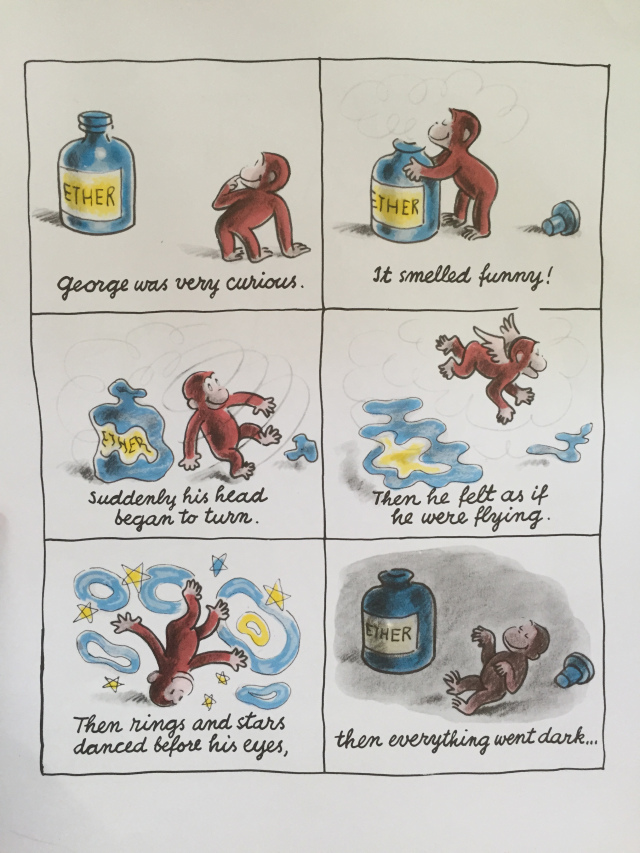 ETHER
George was very curious.
ETHER
It smelled funny!
ETHER
Suddenly his head
began to turn.
Then he felt as if
he were flying.
Then rings and stars
danced before his eyes,
ETHER
then everything went dark...